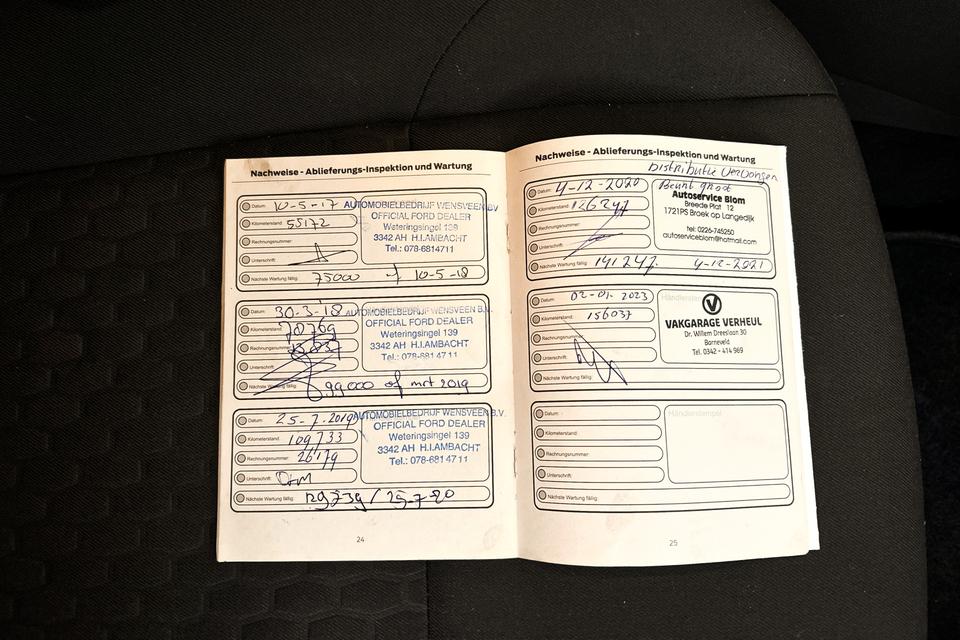 Nachweise - Ablieferungs-Inspektion und Wartung
Datum: 10-5-17
Kilometerstand: 55172
Rechnungsnummer:
Unterschrift:
Nächste Wartung fällig: 75000 of 10-5-18
AUTOMOBIELBEDRIJF WENSVEEN BV
OFFICIAL FORD DEALER
Weteringsingel 139
3342 AH H.I.AMBACHT
Tel.: 078-6814711
Datum: 30-3-18
Kilometerstand:
Rechnungsnummer:
Unterschrift:
Nächste Wartung fällig: 99000 of mrt 2019
AUTOMOBIELBEDRIJF WENSVEEN B.V.
OFFICIAL FORD DEALER
Weteringsingel 139
3342 AH H.I.AMBACHT
Tel.: 078-681 47 11
Datum: 25-7-2019
Kilometerstand: 109733
Rechnungsnummer: 26179
Unterschrift:
Nächste Wartung fällig: 129739 / 25-7-20
AUTOMOBIELBEDRIJF WENSVEEN B.V.
OFFICIAL FORD DEALER
Weteringsingel 139
3342 AH H.I.AMBACHT
Tel.: 078-681 47 11
24
Nachweise - Ablieferungs-Inspektion und Wartung
Distributie vervangen
Beurt groot
Datum: 4-12-2020
Kilometerstand: 126247
Rechnungsnummer:
Unterschrift:
Nächste Wartung fällig: 141247. 4-12-2021
Autoservice Blom
Breede Plat 12
1721PS Broek op Langedijk
tel: 0226-745250
autoserviceblom@hotmail.com
Datum: 02-01-2023
Kilometerstand: 156037
Rechnungsnummer:
Unterschrift:
Nächste Wartung fällig:
Händlerstempel
VAKGARAGE VERHEUL
Dr. Willem Dreeslaan 30
Barneveld
Tel. 0342 - 414 969
Datum:
Kilometerstand:
Rechnungsnummer:
Unterschrift:
Nächste Wartung fällig:
Händlerstempel
25